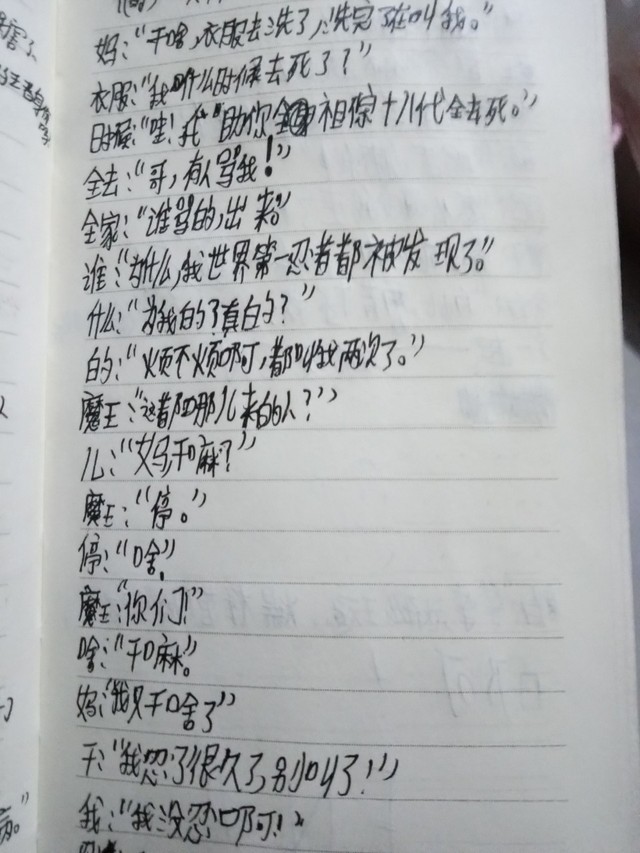 妈：“干啥，衣服去洗了，洗完了在叫我。”
衣服：“我啥什么时候去死了？”
时候：“哇！我助你祖宗十八代全去死。”
全去：“哥，有人骂我！”
全家：“谁骂的，出来。”
谁：“为什么，我世界第一忍者都被发现了。”
什么：“为我的了真白的？”
的：“烦不烦啊，都叫我两次了。”
魔王：“这都哪儿来的人？”
儿：“妈，干嘛？”
魔王：“停。”
停：“啥”
魔王：“你们！”
啥：“干嘛。”
妈：“我只干啥了”
干：“我忍了很久了，别叫了！”
我：“我没忍啊！”